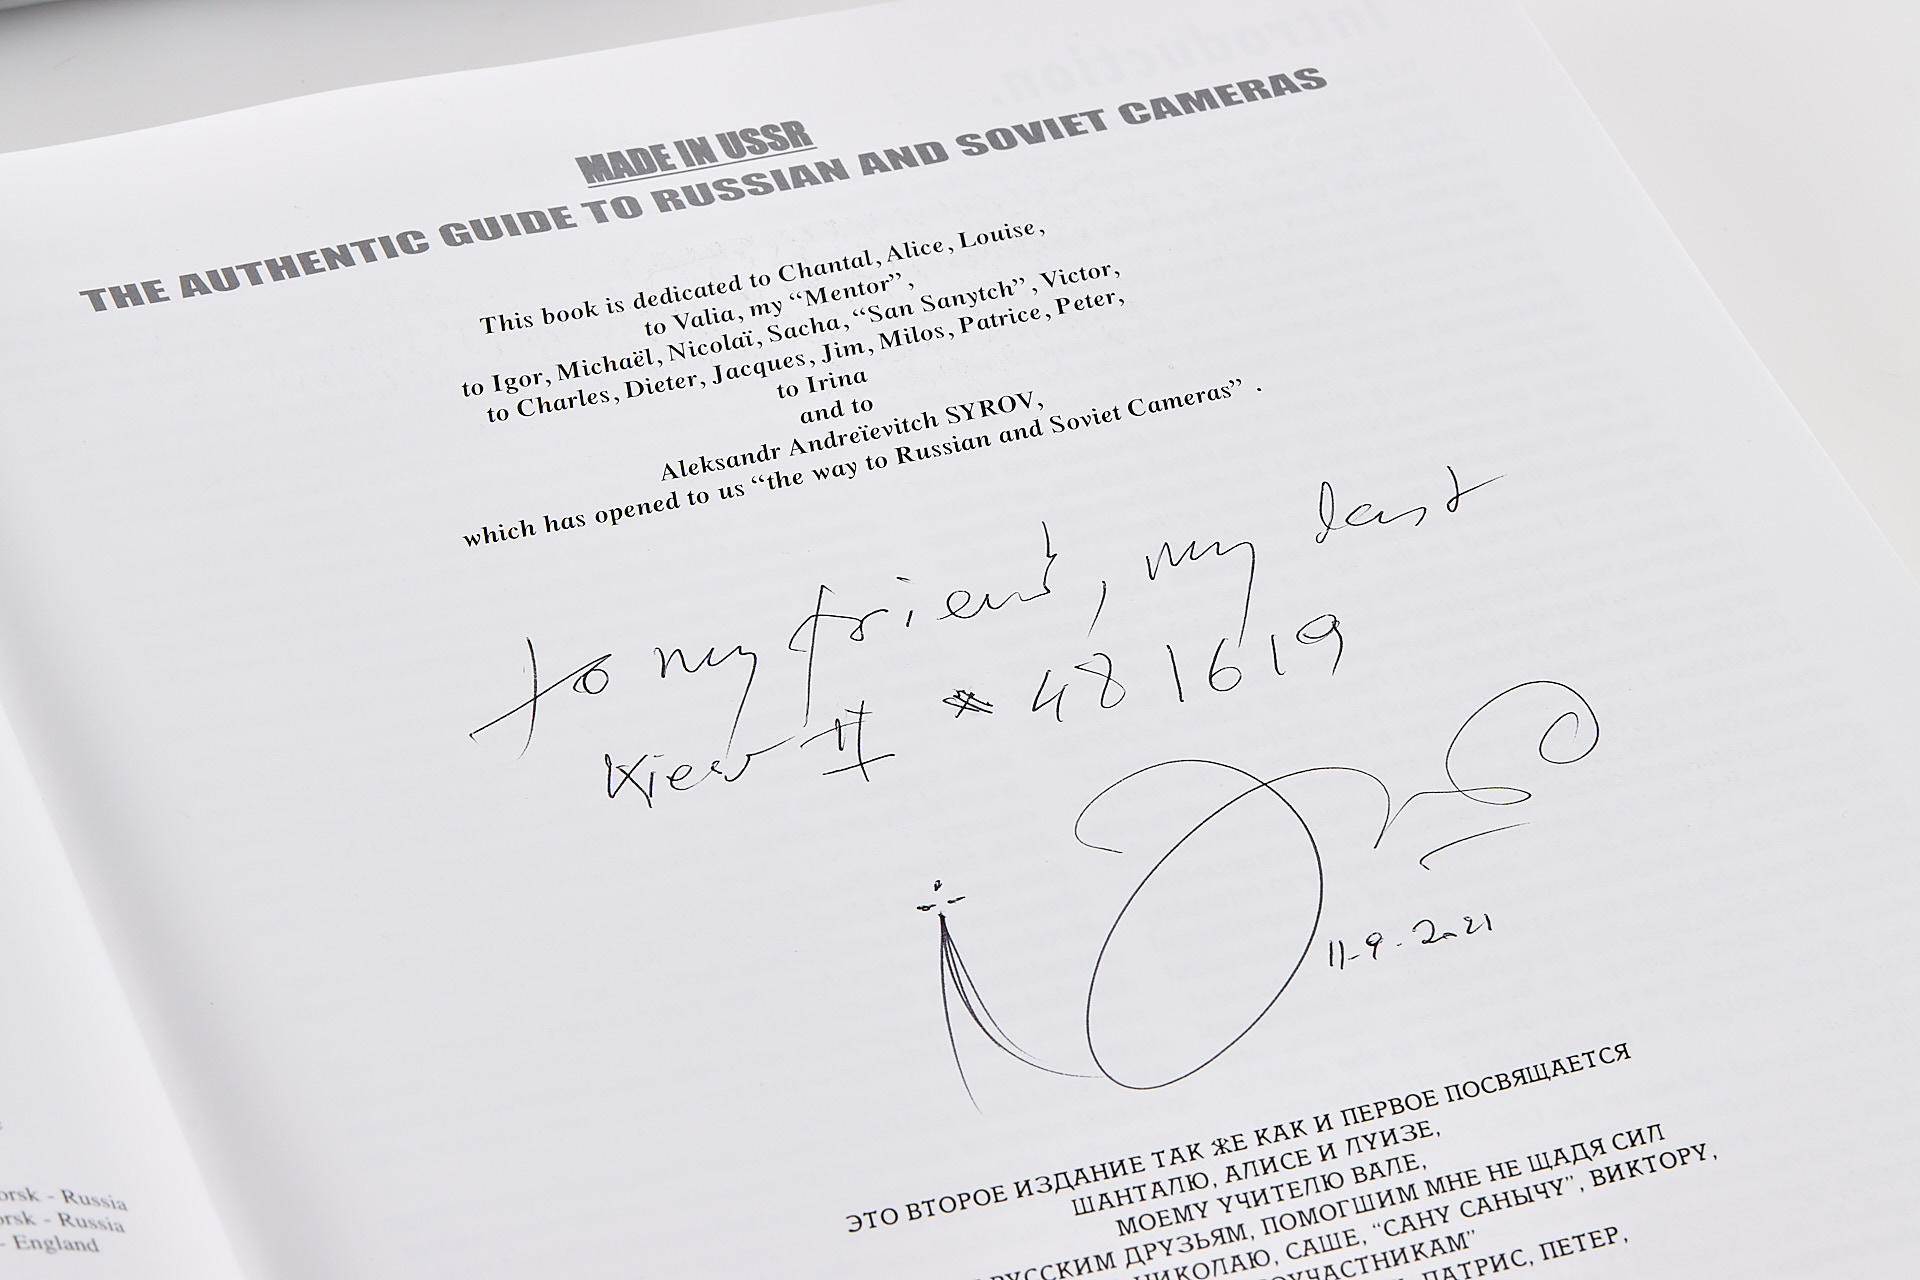 Introduction.
MADE IN USSR
THE AUTHENTIC GUIDE TO RUSSIAN AND SOVIET CAMERAS
This book is dedicated to Chantal, Alice, Louise,
to Valia, my “Mentor”,
to Igor, Michaël, Nicolaï, Sacha, “San Sanytch”, Victor,
to Charles, Dieter, Jacques, Jim, Milos, Patrice, Peter,
to Irina
and to
Aleksandr Andreïevitch SYROV,
which has opened to us “the way to Russian and Soviet Cameras” .
to my friend, my last
Kiev II * 481619
11-9-2021
ЭТО ВТОРОЕ ИЗДАНИЕ ТАК ЖЕ КАК И ПЕРВОЕ ПОСВЯЩАЕТСЯ
ШАНТАЛЮ, АЛИСЕ И ЛУИЗЕ,
МОЕМУ УЧИТЕЛЮ ВАЛЕ,
РУССКИМ ДРУЗЬЯМ, ПОМОГШИМ МНЕ НЕ ЩАДЯ СИЛ
НИКОЛАЮ, САШЕ, “САНУ САНЫЧУ”, ВИКТОРУ,
ОУЧАСТНИКАМ”
ПАТРИС, ПЕТЕР,
orsk - Russia
orsk - Russia
- England